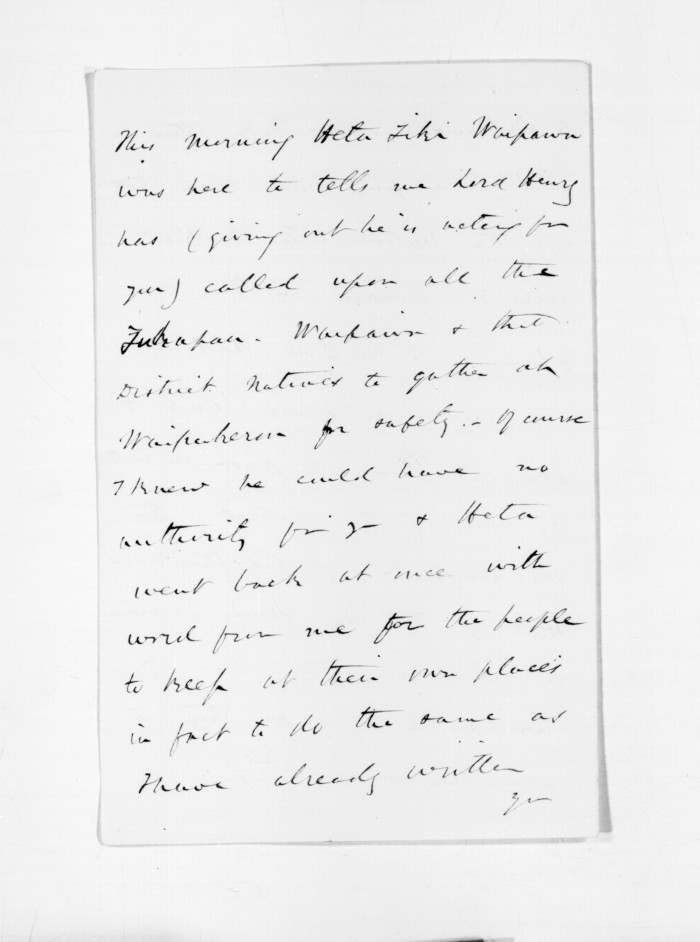 This morning Heta Tiki Waipawa
was here to tells me Lord Henry
has (giving out he is acting for
you) called upon all the
Tukapau - Waipawa & that
District Natives to gather at
Waipukerau for safety. - Of course
I knew he could have no
authority from you & Heta
went back at once with
word from me for the people
to keep at their own places
in fact to do the same as
I have already written
you